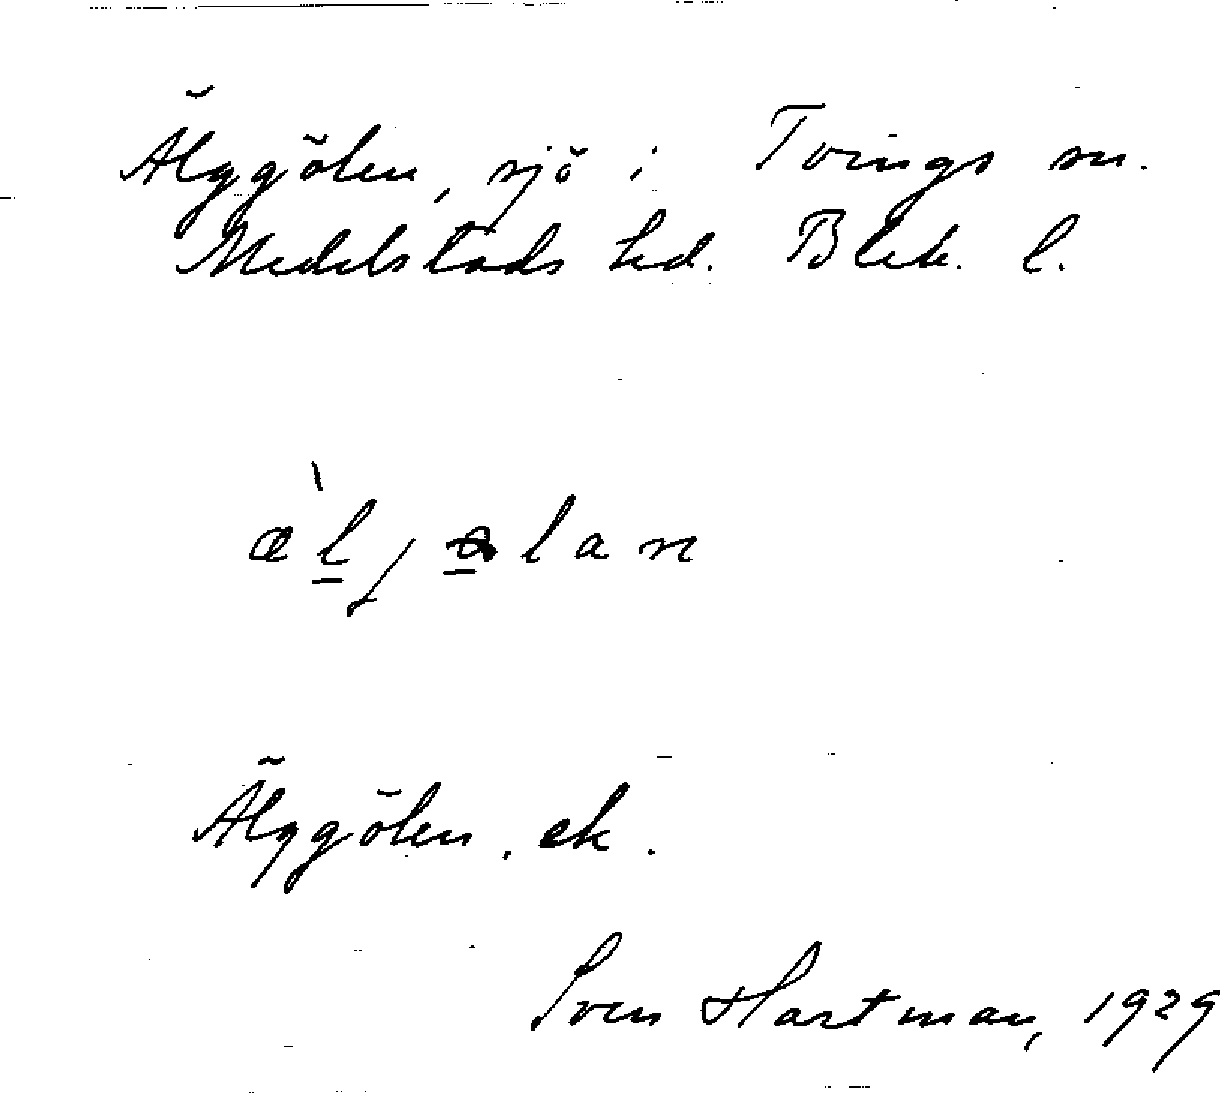 Älggölen, sjö i Tvings sn.
Medelstads hd. Blek. l.
Älggölen, ek.
Sven Hartman, 1929